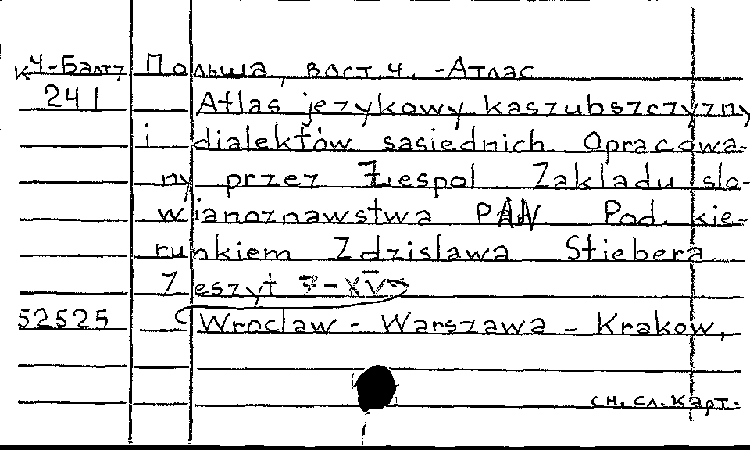 К4-Балт Польша, вост.ч. -Атлас
241 Atlas jezykowy kaszubszczyzny
i dialektów sasiednich. Opracowa-
ny przez Zespol Zakladu sla-
wianoznawstwa PAN Pod. kie-
runkiem Zdzislawa Stiebera
Zeszyt
52525 Wroclaw - Warszawa - Krakow,
сн. сл. карт.